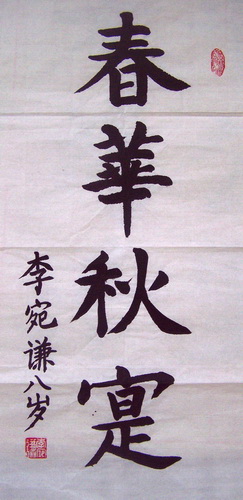 春華秋寔
李宛谦八岁